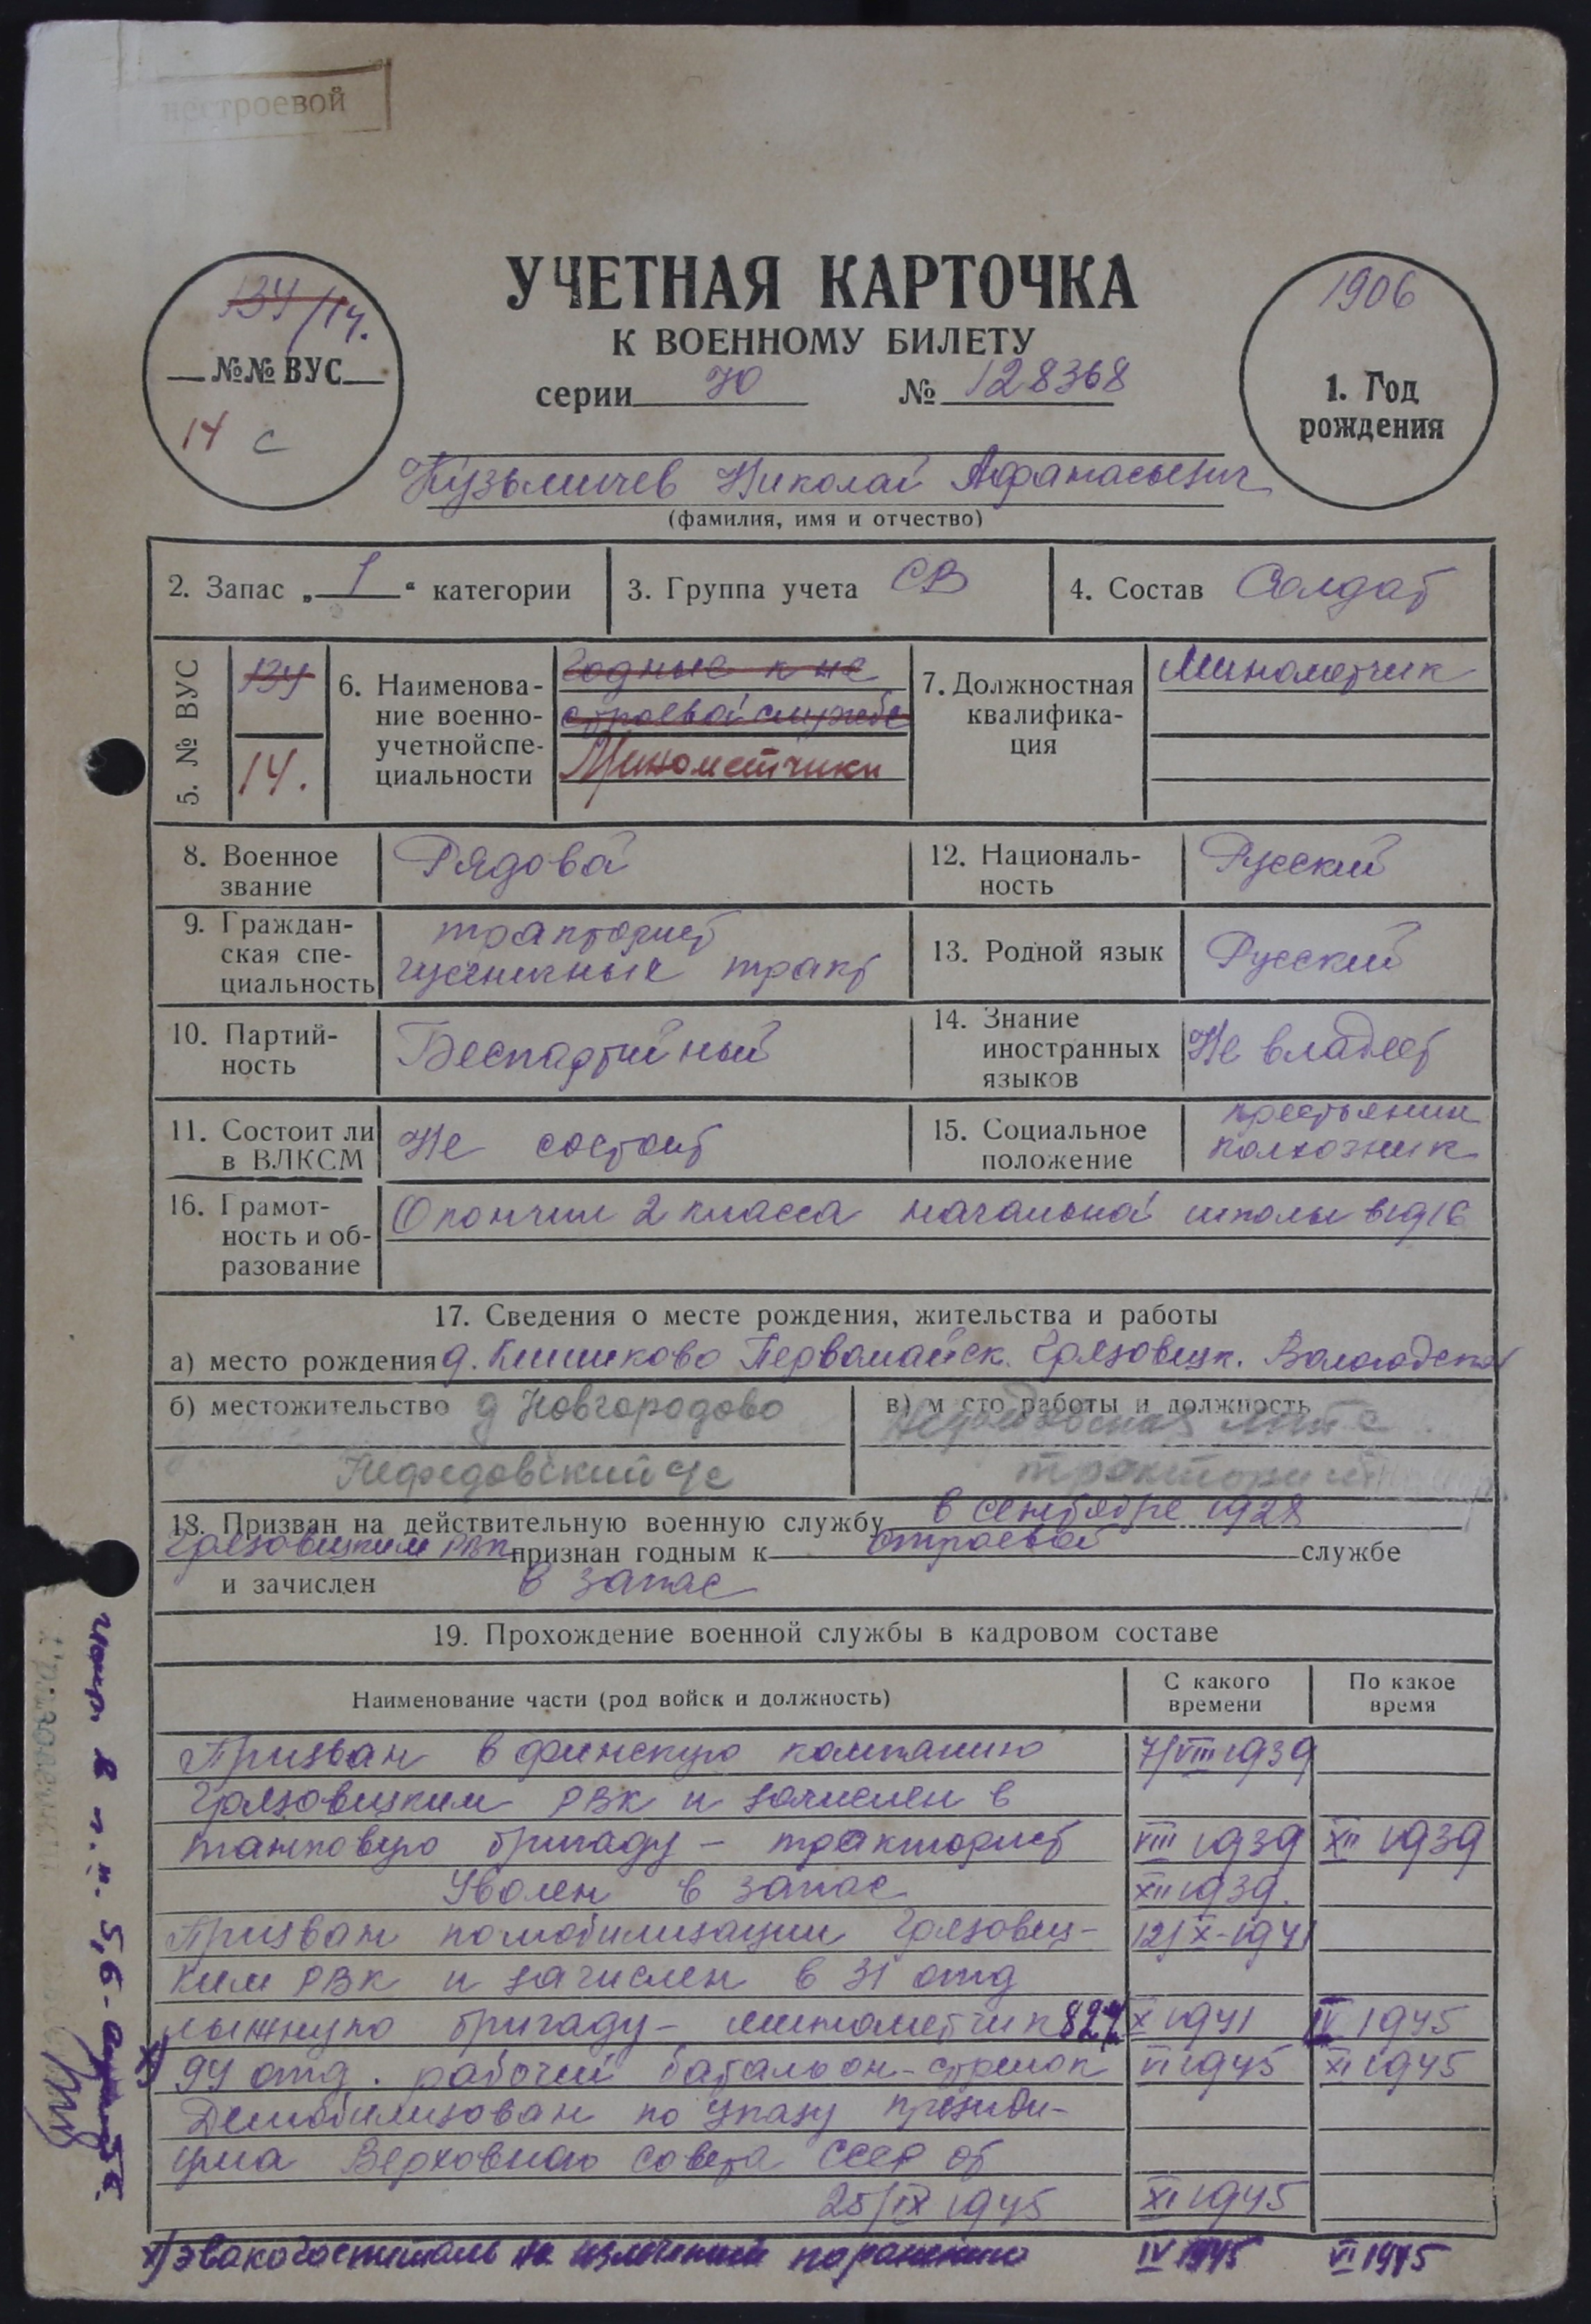 нестроевой
134/14.
№№ ВУС
14 с
УЧЕТНАЯ КАРТОЧКА
К ВОЕННОМУ БИЛЕТУ
серии НО № 128368
1906
1. Год
рождения
Кузьмичев Николай Афанасьевич
(фамилия, имя и отчество)
2. Запас „ 1 “ категории
3. Группа учета СВ
4. Состав Солдат
5. № ВУС
134
14.
6. Наименова-
ние военно-
учетнойспе-
циальности
Годные к не
строевой службе
Минометчики
7. Должностная
квалифика-
ция
Минометчик
8. Военное
звание
Рядовой
12. Националь-
ность
Русский
9. Граждан-
ская спе-
циальность
тракторист
гусеничные тракт
13. Родной язык
Русский
10. Партий-
ность
Беспартийный
14. Знание
иностранных
языков
Не владеет
11. Состоит ли
в ВЛКСМ
Не состоит
15. Социальное
положение
крестьянин
колхозник
16. Грамот-
ность и об-
разование
Окончил 2 класса начальной школы в 1916
17. Сведения о месте рождения, жительства и работы
а) место рождения д. Первомайск. Грязовецк. Вологодской
б) местожительство д Новгородово
Нефедовский с/с
в) м сто работы и должность
Нефедовская
тракторист
18. Призван на действительную военную службу в сентябре 1928
Грязовецким РВК признан годным к строевой службе
и зачислен в запас
19. Прохождение военной службы в кадровом составе
Наименование части (род войск и должность)
С какого
времени
По какое
время
Призван в финскую компанию 7/VIII 1939
Грязовецким РВК и зачислен в
танковую бригаду - тракторист VIII 1939 XII 1939
Уволен в запас XII 1939.
Призван по мобилизации Грязовец- 12/X-1941
ким РВК и зачислен в 31 отд
лыжную бригаду - минометчик 82 X 1941 IV 1945
х) 94 отд. рабочий батальон - стрелок VI 1945 XI 1945
Демобилизован по указу президи-
ума Верховного совета СССР от
25/IX 1945 XI 1945
х) эвакогоспиталь на излечении по ранению IV 1945 VI 1945
в п.п. 5,6 -